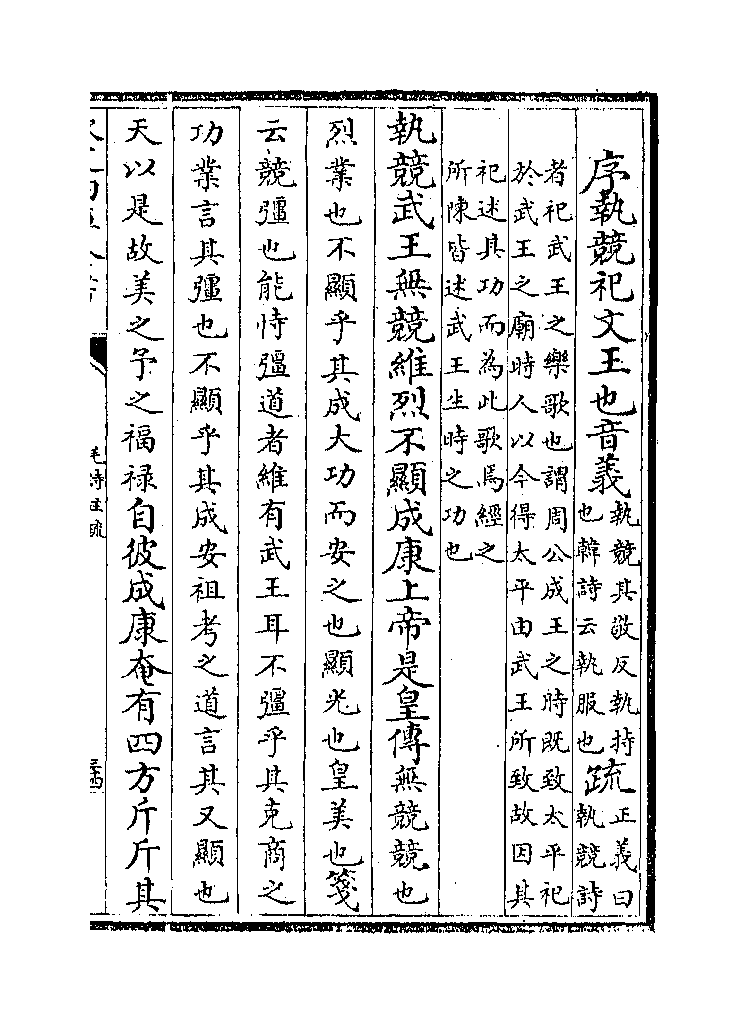 序執競祀文王也音義執競其敬反執持也韓詩云執服也疏正義曰執競詩
者祀武王之樂歌也謂周公成王之時既致太平祀
於武王之廟時人以今得太平由武王所致故因其
祀述其功而為此歌焉經之
所陳皆述武王生時之功也
執競武王無競維烈不顯成康上帝是皇傳無競競也
烈業也不顯乎其成大功而安之也顯光也皇美也箋
云競彊也能恃彊道者維有武王耳不彊乎其克商之
功業言其彊也不顯乎其成安祖考之道言其又顯也
天以是故美之予之福禄自彼成康奄有四方斤斤其
毛詩注疏